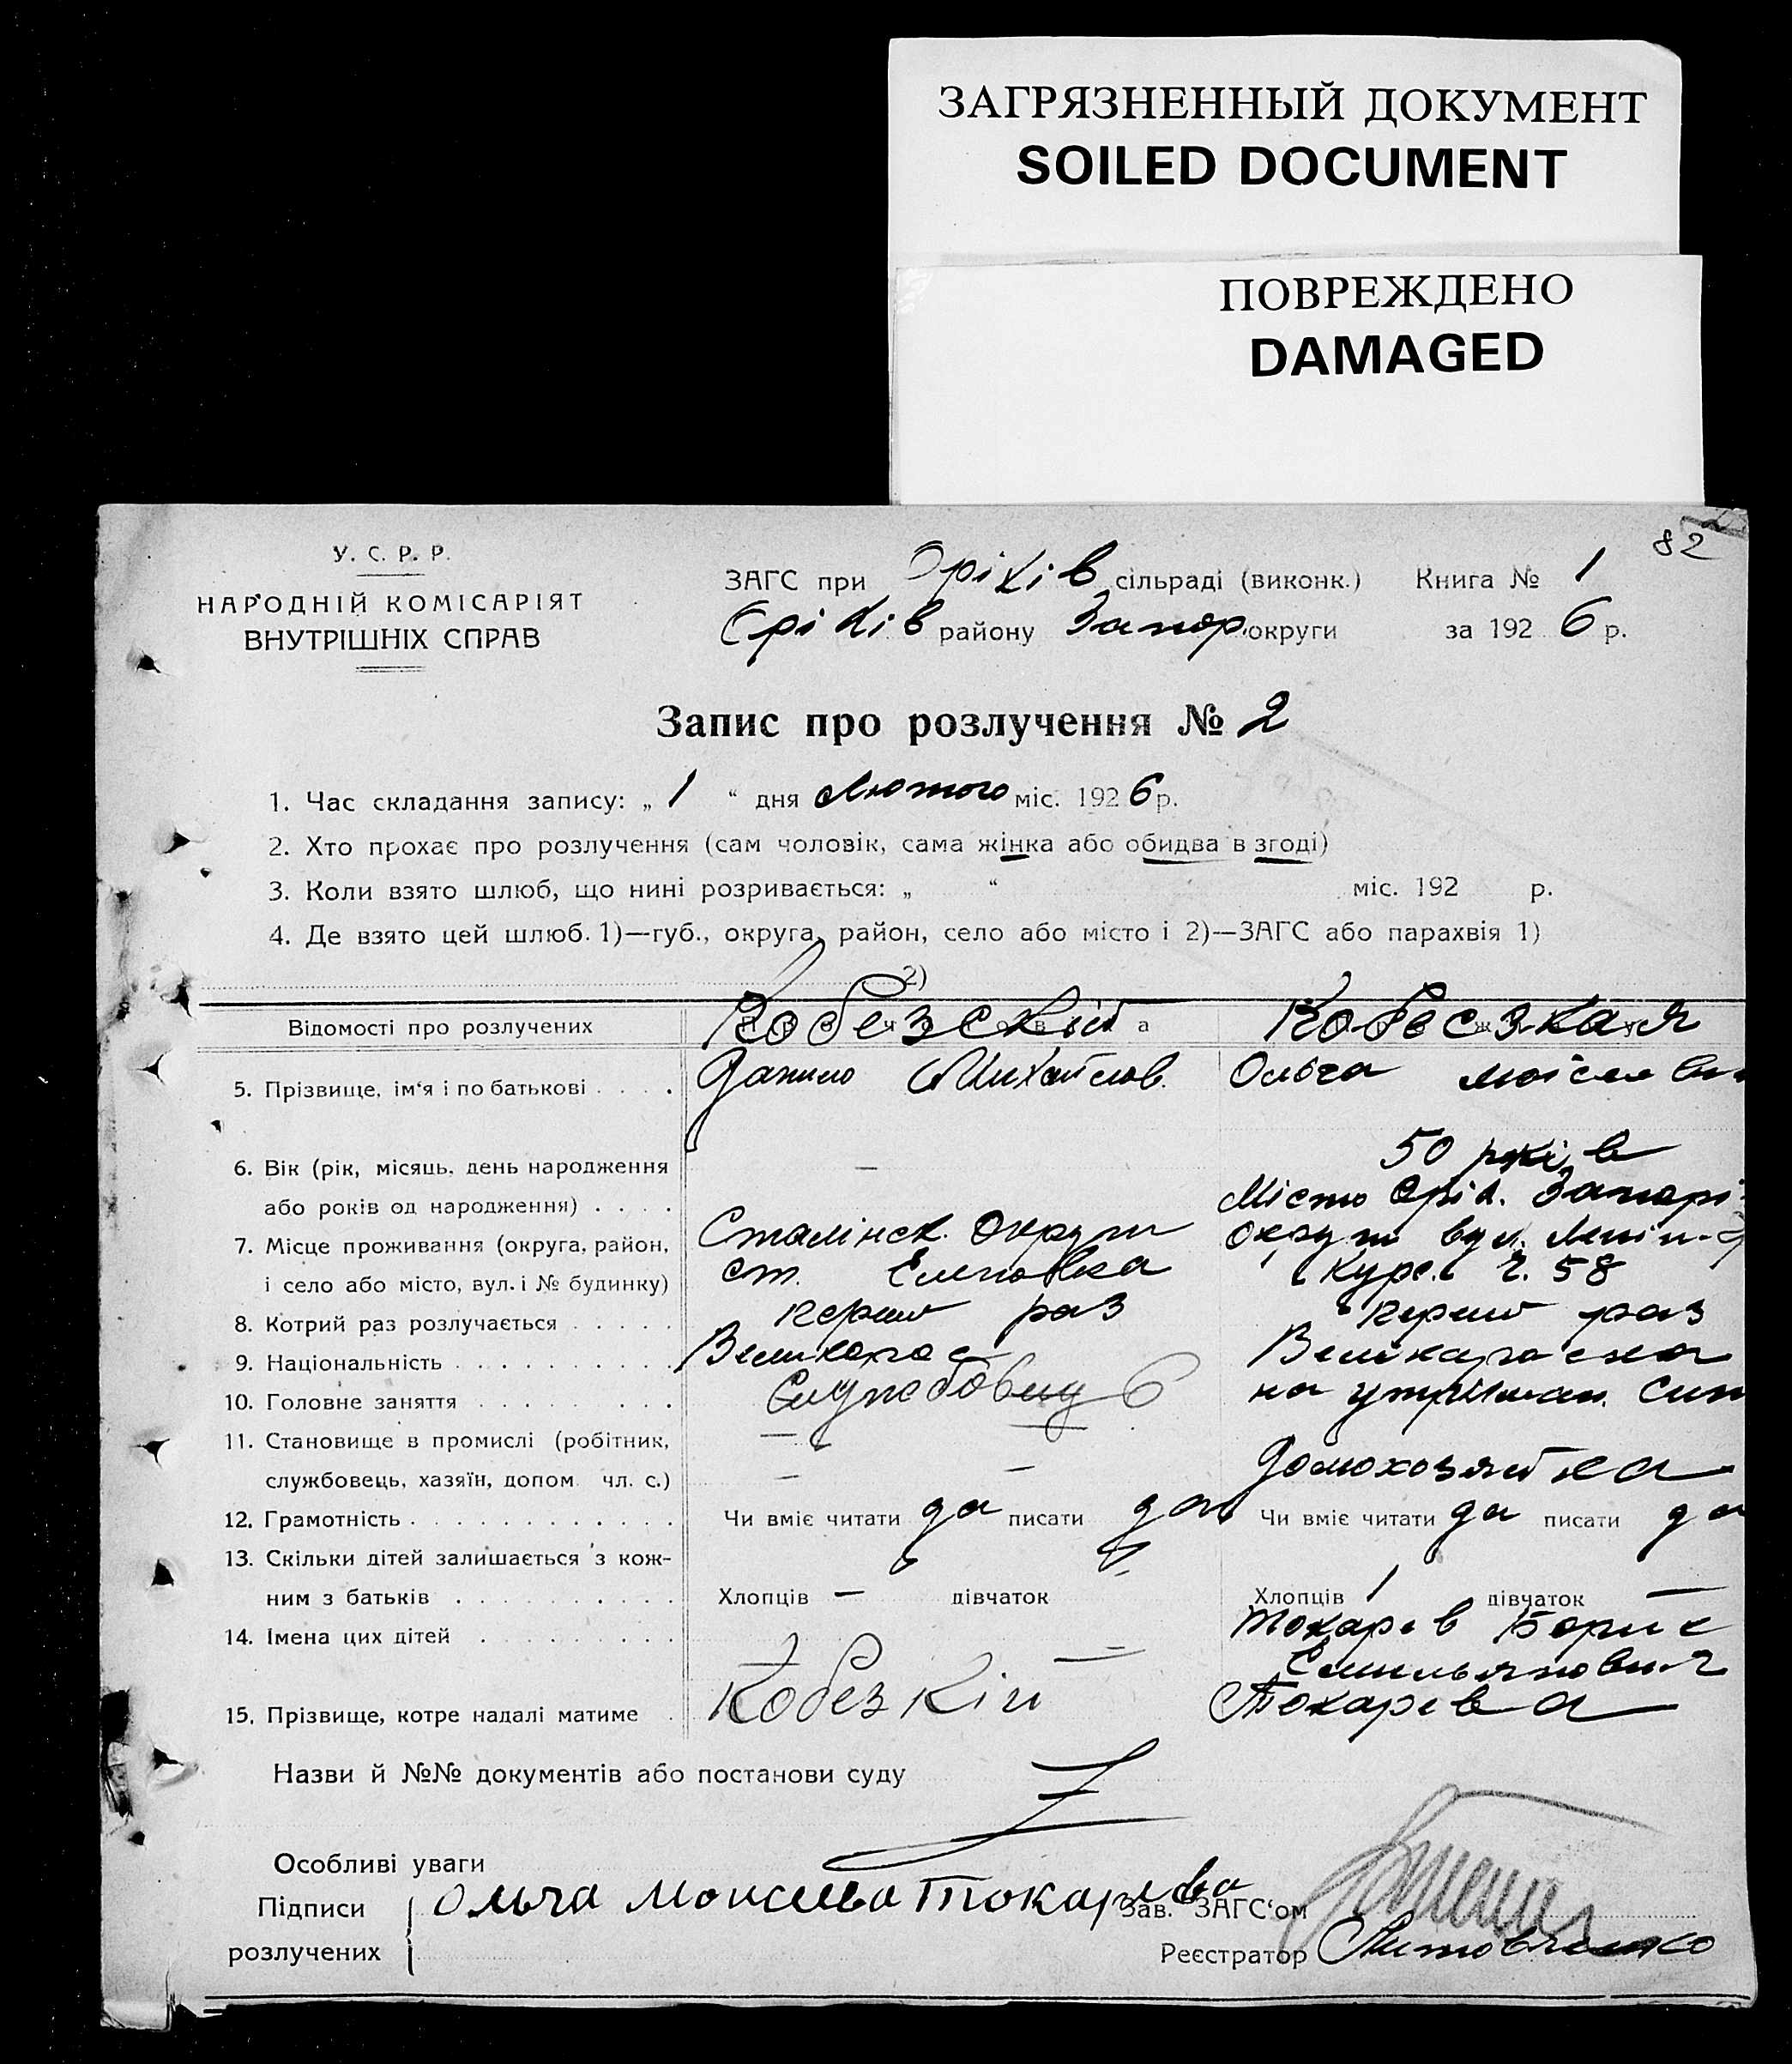 ЗАГРЯЗНЕННЫЙ ДОКУМЕНТ
SOILED DOCUMENT
ПОВРЕЖДЕНО
DAMAGED
82
У. С. Р. Р.
НАРОДНІЙ КОМІСАРІЯТ
ВНУТРІШНІХ СПРАВ
ЗАГС при Оріхів сільраді (виконк.) Книга № 1
Оріхів району Запор. округи за 1926 р.
Запис про розлучення № 2
1. Час складання запису: „ 1 “ дня Лютого міс. 1926 р.
2. Хто прохає про розлучення (сам чоловік, сама жінка або обидва в згоді)
3. Коли взято шлюб, що нині розривається: „ “ міс. 192 р.
4. Де взято цей шлюб. 1)—губ., округа, район, село або місто і 2)—ЗАГС або парахвія 1)
2)
Відомості про розлучених Кобезский Кобесзкая
5. Прізвище, ім‘я і по батькові . . . . Данило Михайлов. Ольга
6. Вік (рік, місяць, день народження — 50 років
або років од народження) . . . . Місто Оріх. Запорі
7. Місце проживання (округа, район, Сталінск. Округи округи вул. Леніна
і село або місто, вул. і № будинку) ст. Еленовка ч. 58
8. Котрий раз розлучається . . . . . перший раз перший раз
9. Національність . . . . . . . . . . Великорос Великороска
10. Головне заняття . . . . . . . . . Службовец на утриман. син
11. Становище в промислі (робітник, —
службовець, хазяїн, допом. чл. с.) — — Домохозяйка
12. Грамотність . . . . . . . . . . . . Чи вміє читати да писати да Чи вміє читати да писати да
13. Скільки дітей залишається з кож-
ним з батьків . . . . . . . . . . Хлопців — дівчаток Хлопців 1 дівчаток —
14. Імена цих дітей . . . . . . . . . — — Токарев Борис
Емильянович
15. Прізвище, котре надалі матиме . Кобезкій Токарева
Назви й №№ документів або постанови суду
Особливі уваги
Підписи Ольга Моисева Токарева Зав. ЗАГС‘ом
розлучених Реєстратор Литовченко